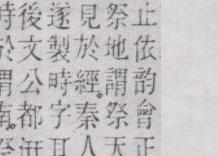 止依韵會正
祭地謂祭天
見於經。秦人
遂製時字耳
後文公都汧
時於謂南。祭